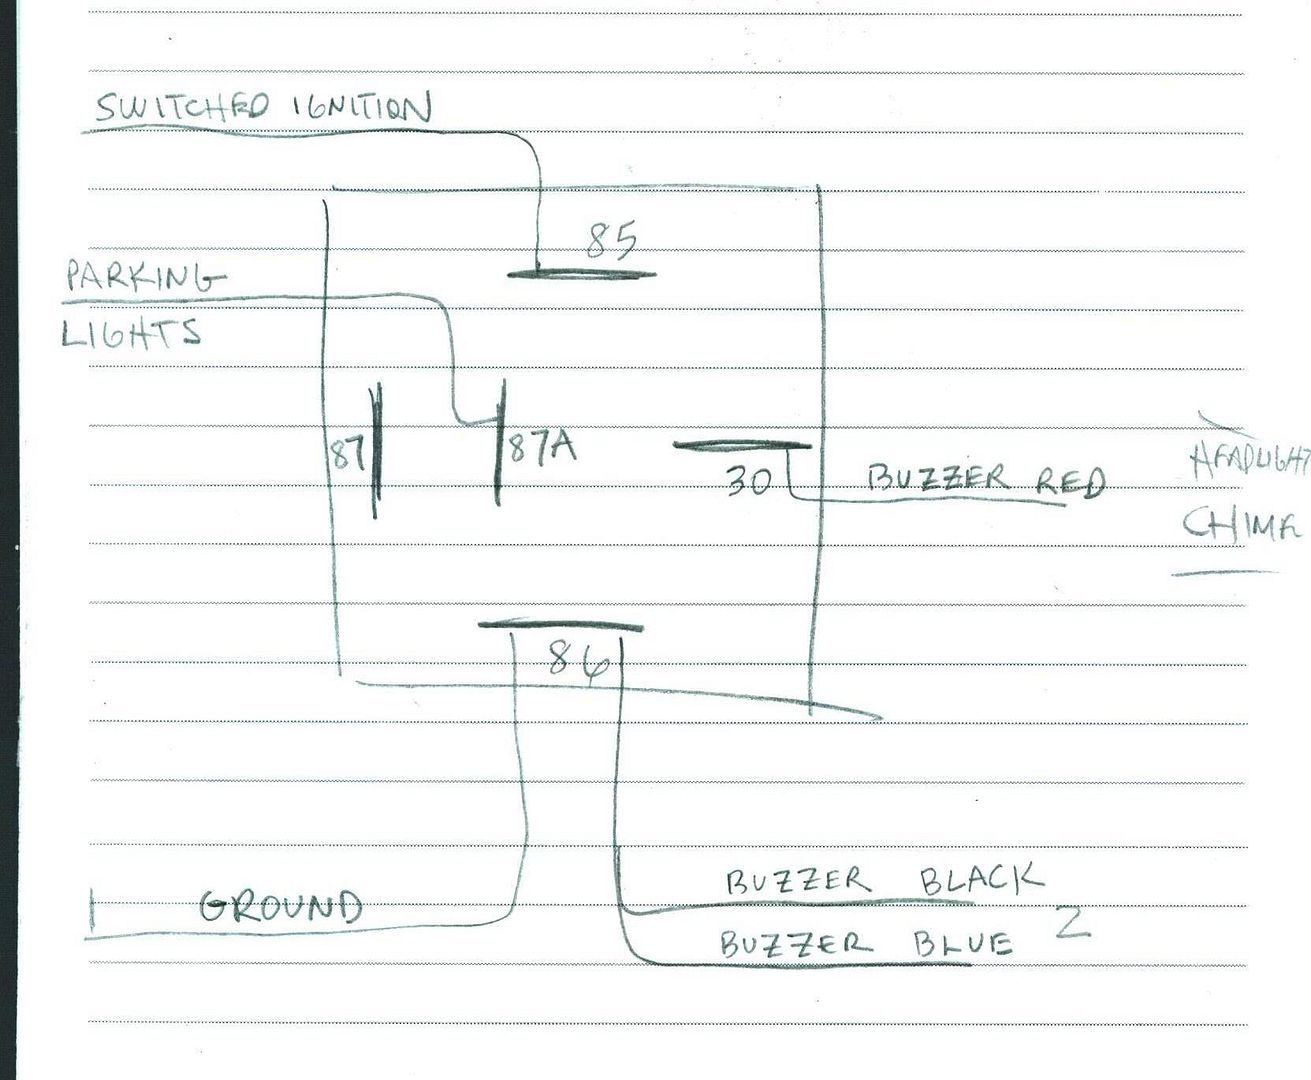 SWITCHED IGNITION
85
PARKING
LIGHTS
87
87A
30
BUZZER RED
HEADLIGHT
CHIME
86
GROUND
BUZZER BLACK
BUZZER BLUE
2